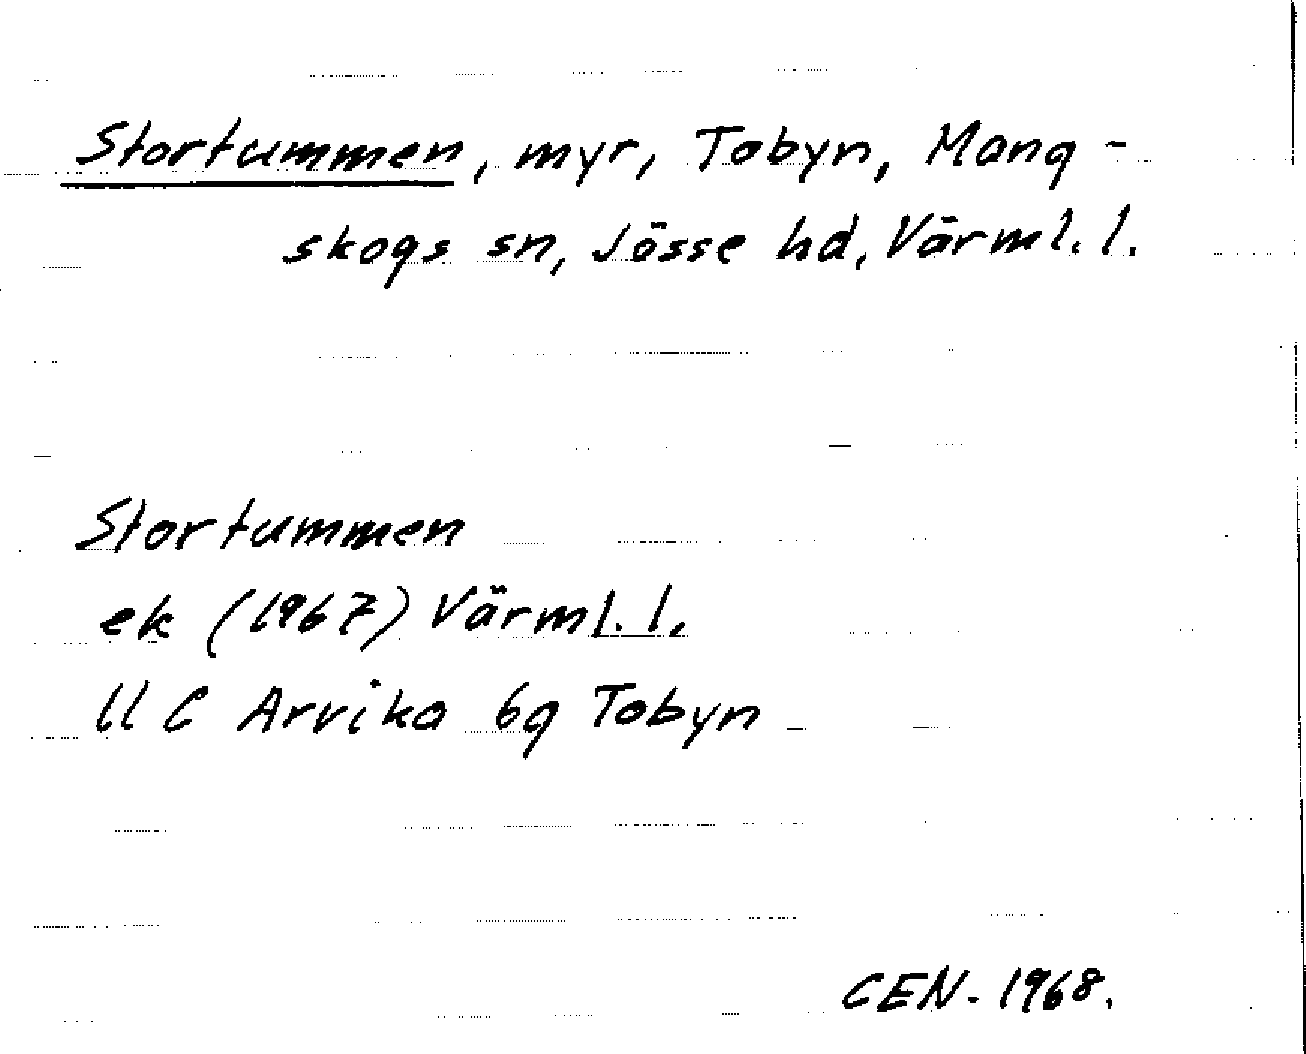 Stortummen, myr, Tobyn, Mang-
skogs sn, Jösse hd, Värml. l.
Stortummen
ek (1967) Värml. l.
11 C Arvika 6g Tobyn
CEN. 1968.